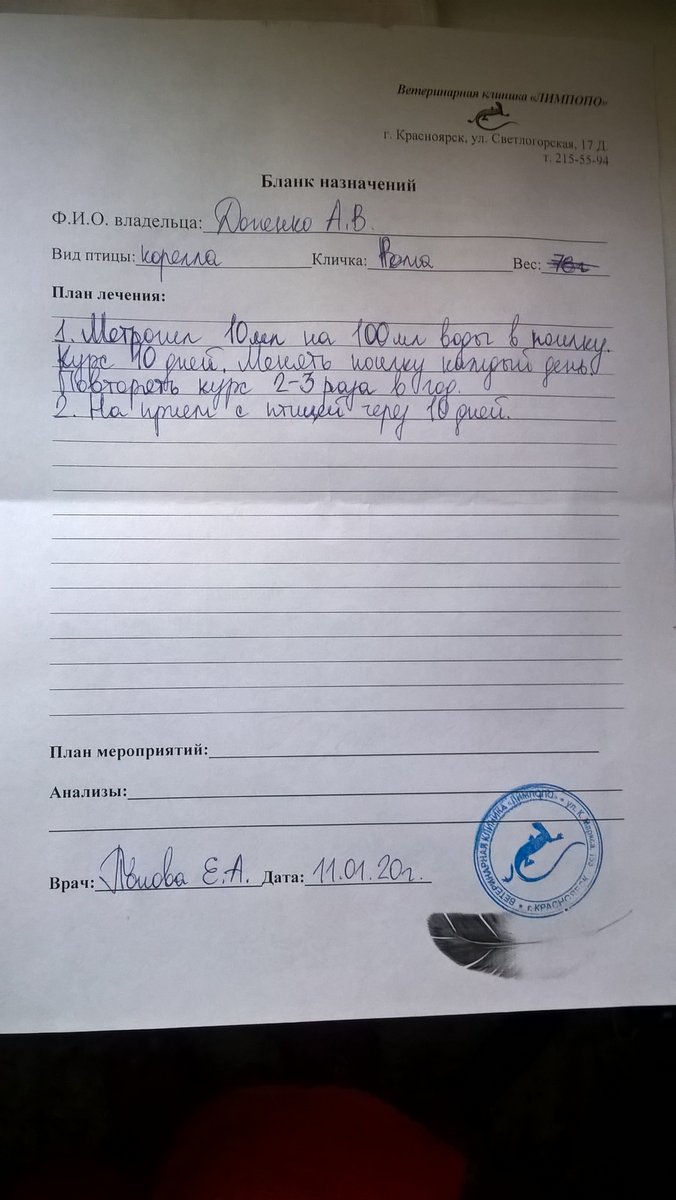 Ветеринарная клиника «ЛИМПОПО»
г. Красноярск, ул. Светлогорская, 17 Д.
т. 215-55-94
Бланк назначений
Ф.И.О. владельца: А.В.
Вид птицы: корелла Кличка: Вес:
План лечения:
1. 10мл на 100мл воды в поилку.
Курс 10 дней. Менять поилку каждый день.
Повторять курс 2-3 раза в год.
2. На прием с птицей через 10 дней.
План мероприятий:
Анализы:
Врач: Е.А. Дата: 11.01.20г.
ВЕТЕРИНАРНАЯ КЛИНИКА «ЛИМПОПО» ул. К. Маркса г. КРАСНОЯРСК